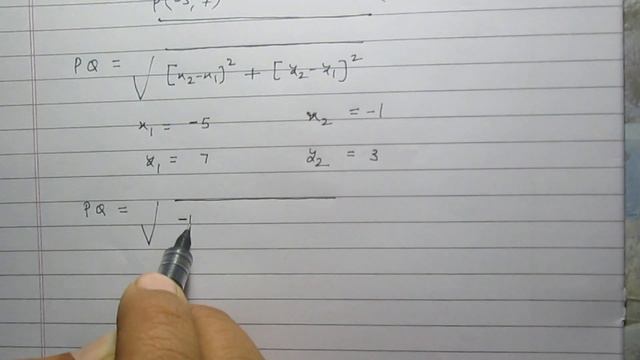 PQ = √[x₂-x₁]² + [y₂-y₁]²
x₁ = -5 x₂ = -1
y₁ = 7 y₂ = 3
PQ = √-1